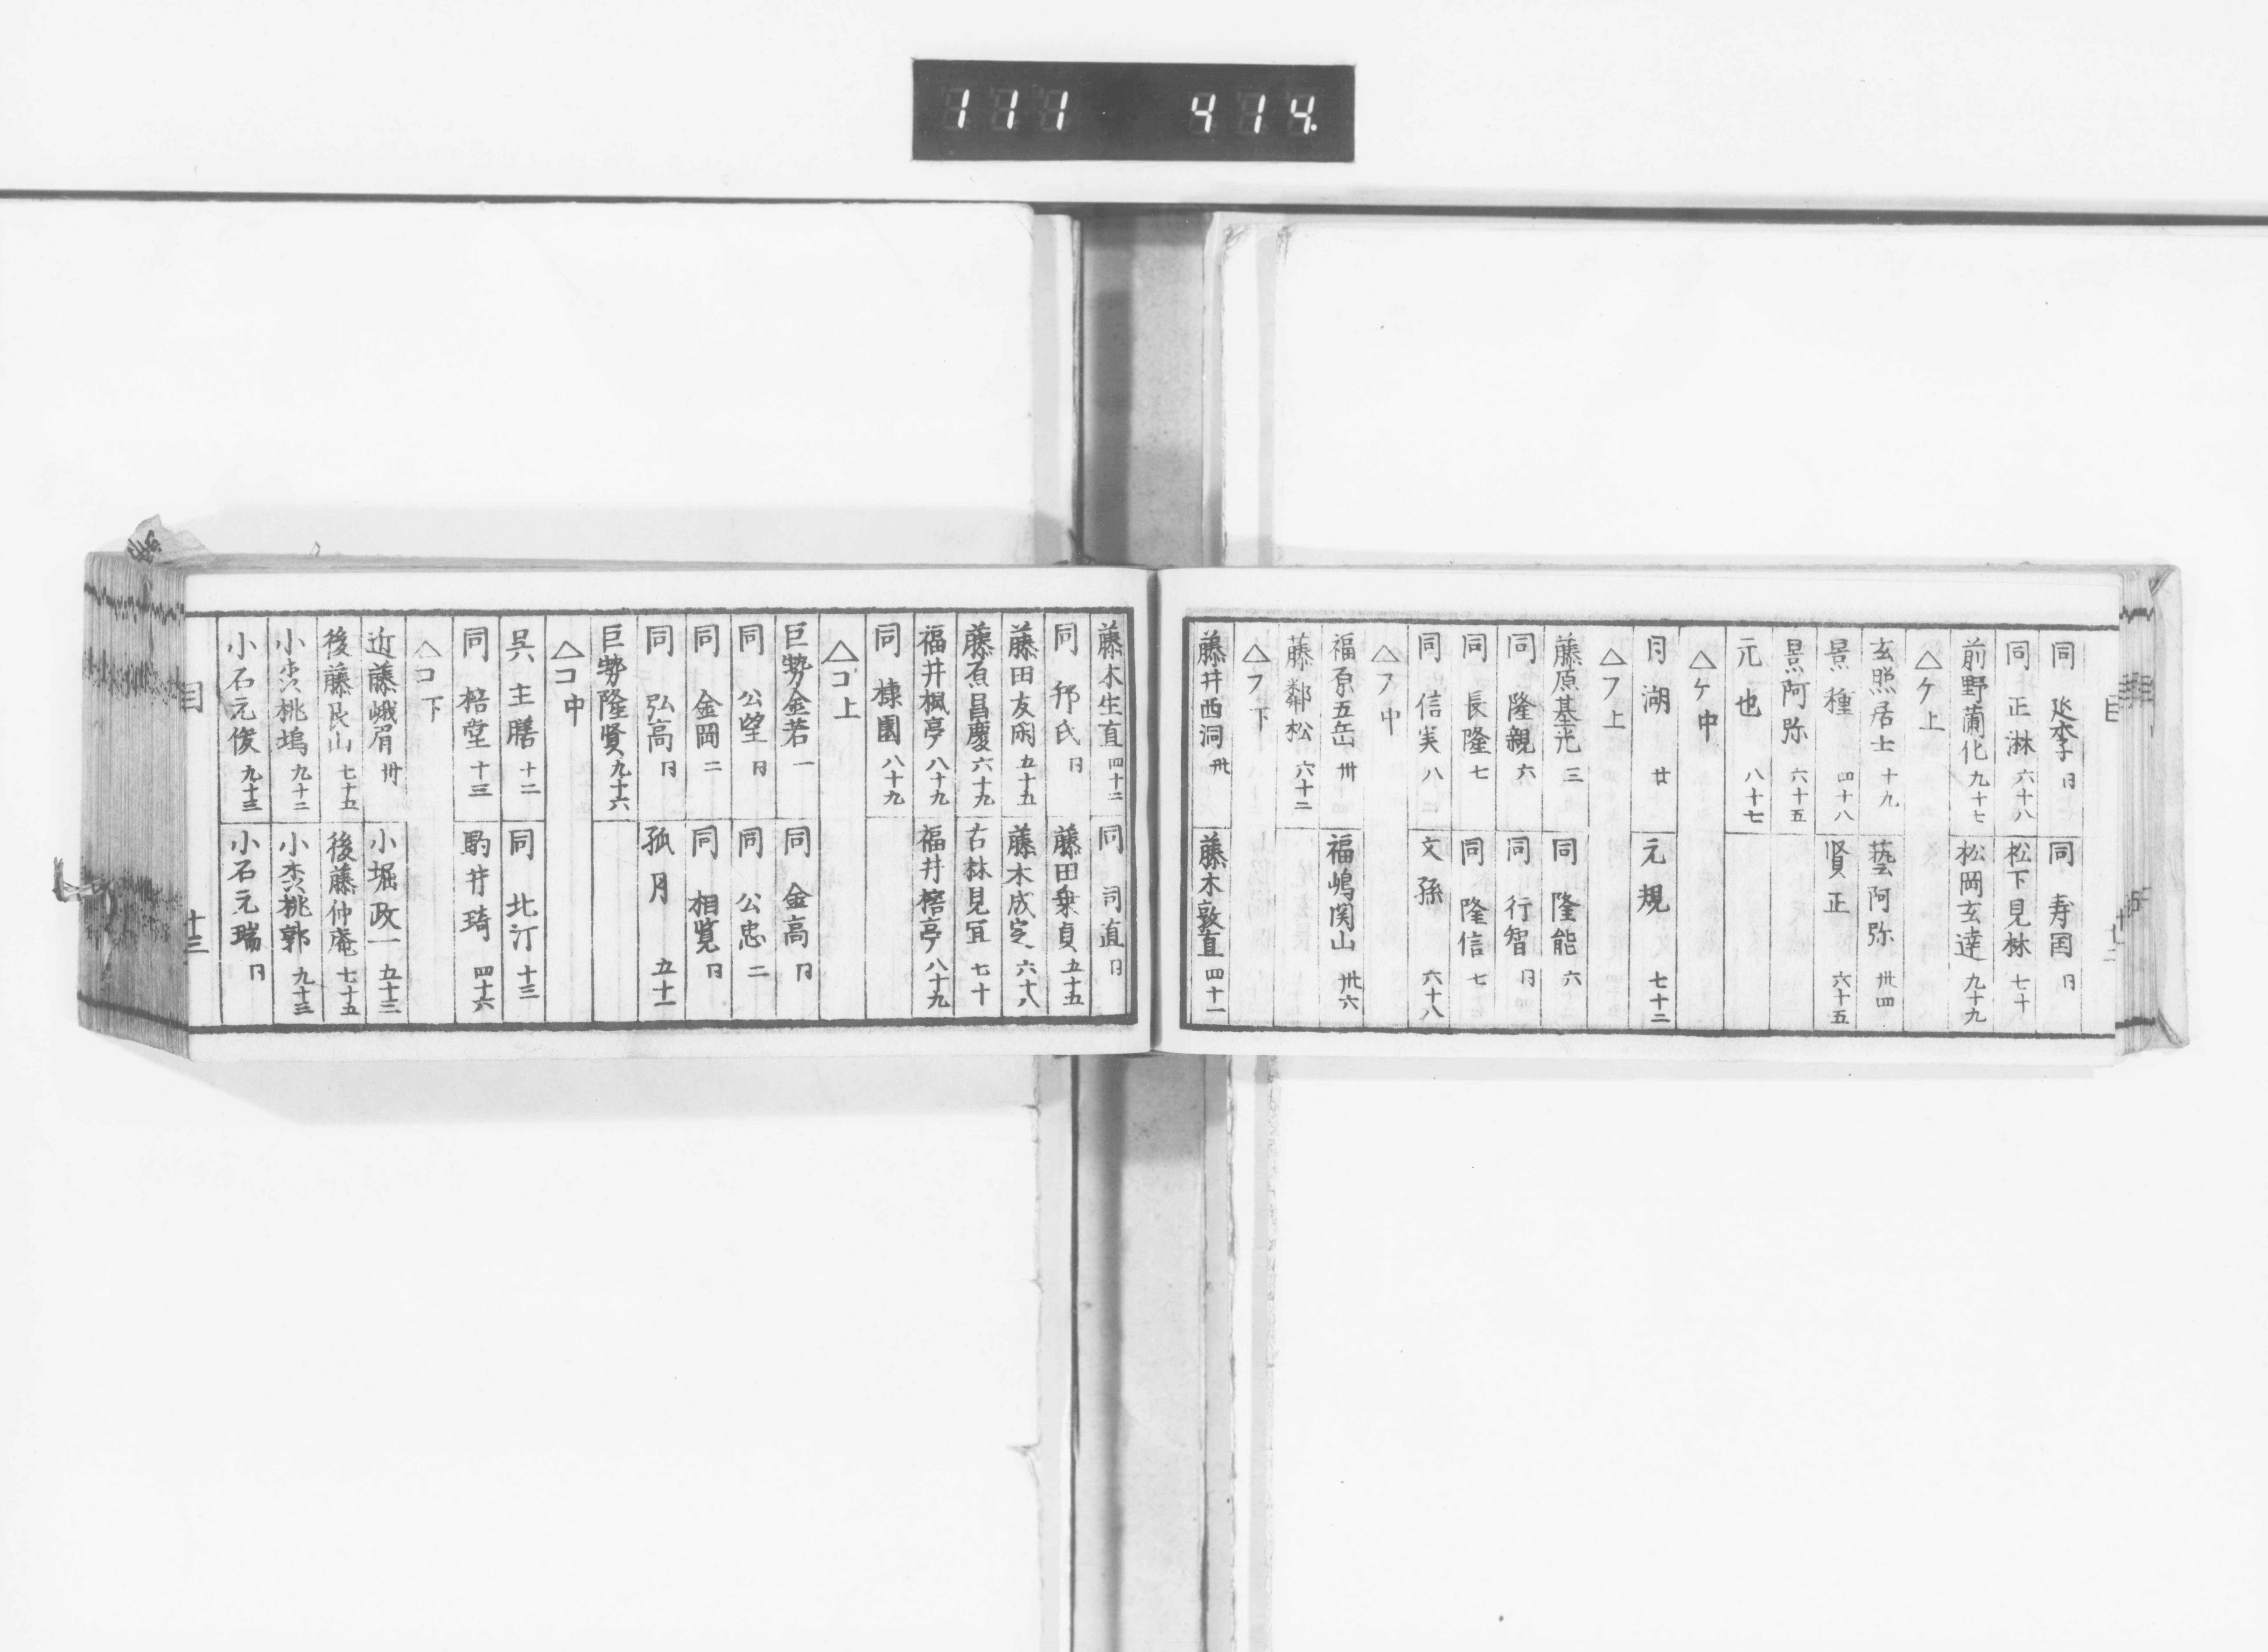 111 414.
同 丞李 同 同 寿囯 同
同 正淋 六十八 松下見林 七十
前野蘭化 九十七 松岡玄達 九十九
△ケ上
玄照居士 十九 藝阿弥 卅四
景種 四十八 賢正 六十五
景阿弥 六十五
元也 八十七
△ケ中
月湖 廿 元規 七十二
△フ上
藤原基光 三 同 隆能 六
同 隆親 六 同 行智 同
同 長隆 七 同 隆信 七
同 信実 八 文孫 六十八
△フ中
福原五岳 卅 福嶋関山 卅六
藤鄰松 六十二
△フ下
藤井西洞 卅 藤木敦直 四十一
藤木生直 四十二 同 司直 同
同 邦氏 同 藤田乗貞 五十五
藤田友閑 五十五 藤木成定 六十八
藤原昌慶 六十九 古林見宜 七十
福井楓亭 八十九 福井榕亭 八十九
同 棣園 八十九
△コ上
巨勢金若 一 同 金高 同
同 公望 同 同 公忠 二
同 金岡 二 同 相覧 同
同 弘高 同 孤月 五十一
巨勢隆賢 九十六
△コ中
呉主膳 十二 同 北汀 十三
同 梧堂 十三 駒井琦 四十六
△コ下
近藤峨眉 卅 小堀政一 五十三
後藤艮山 七十五 後藤仲庵 七十五
小栗桃塢 九十二 小栗桃郭 九十三
小石元俊 九十三 小石元瑞 同
目 十三